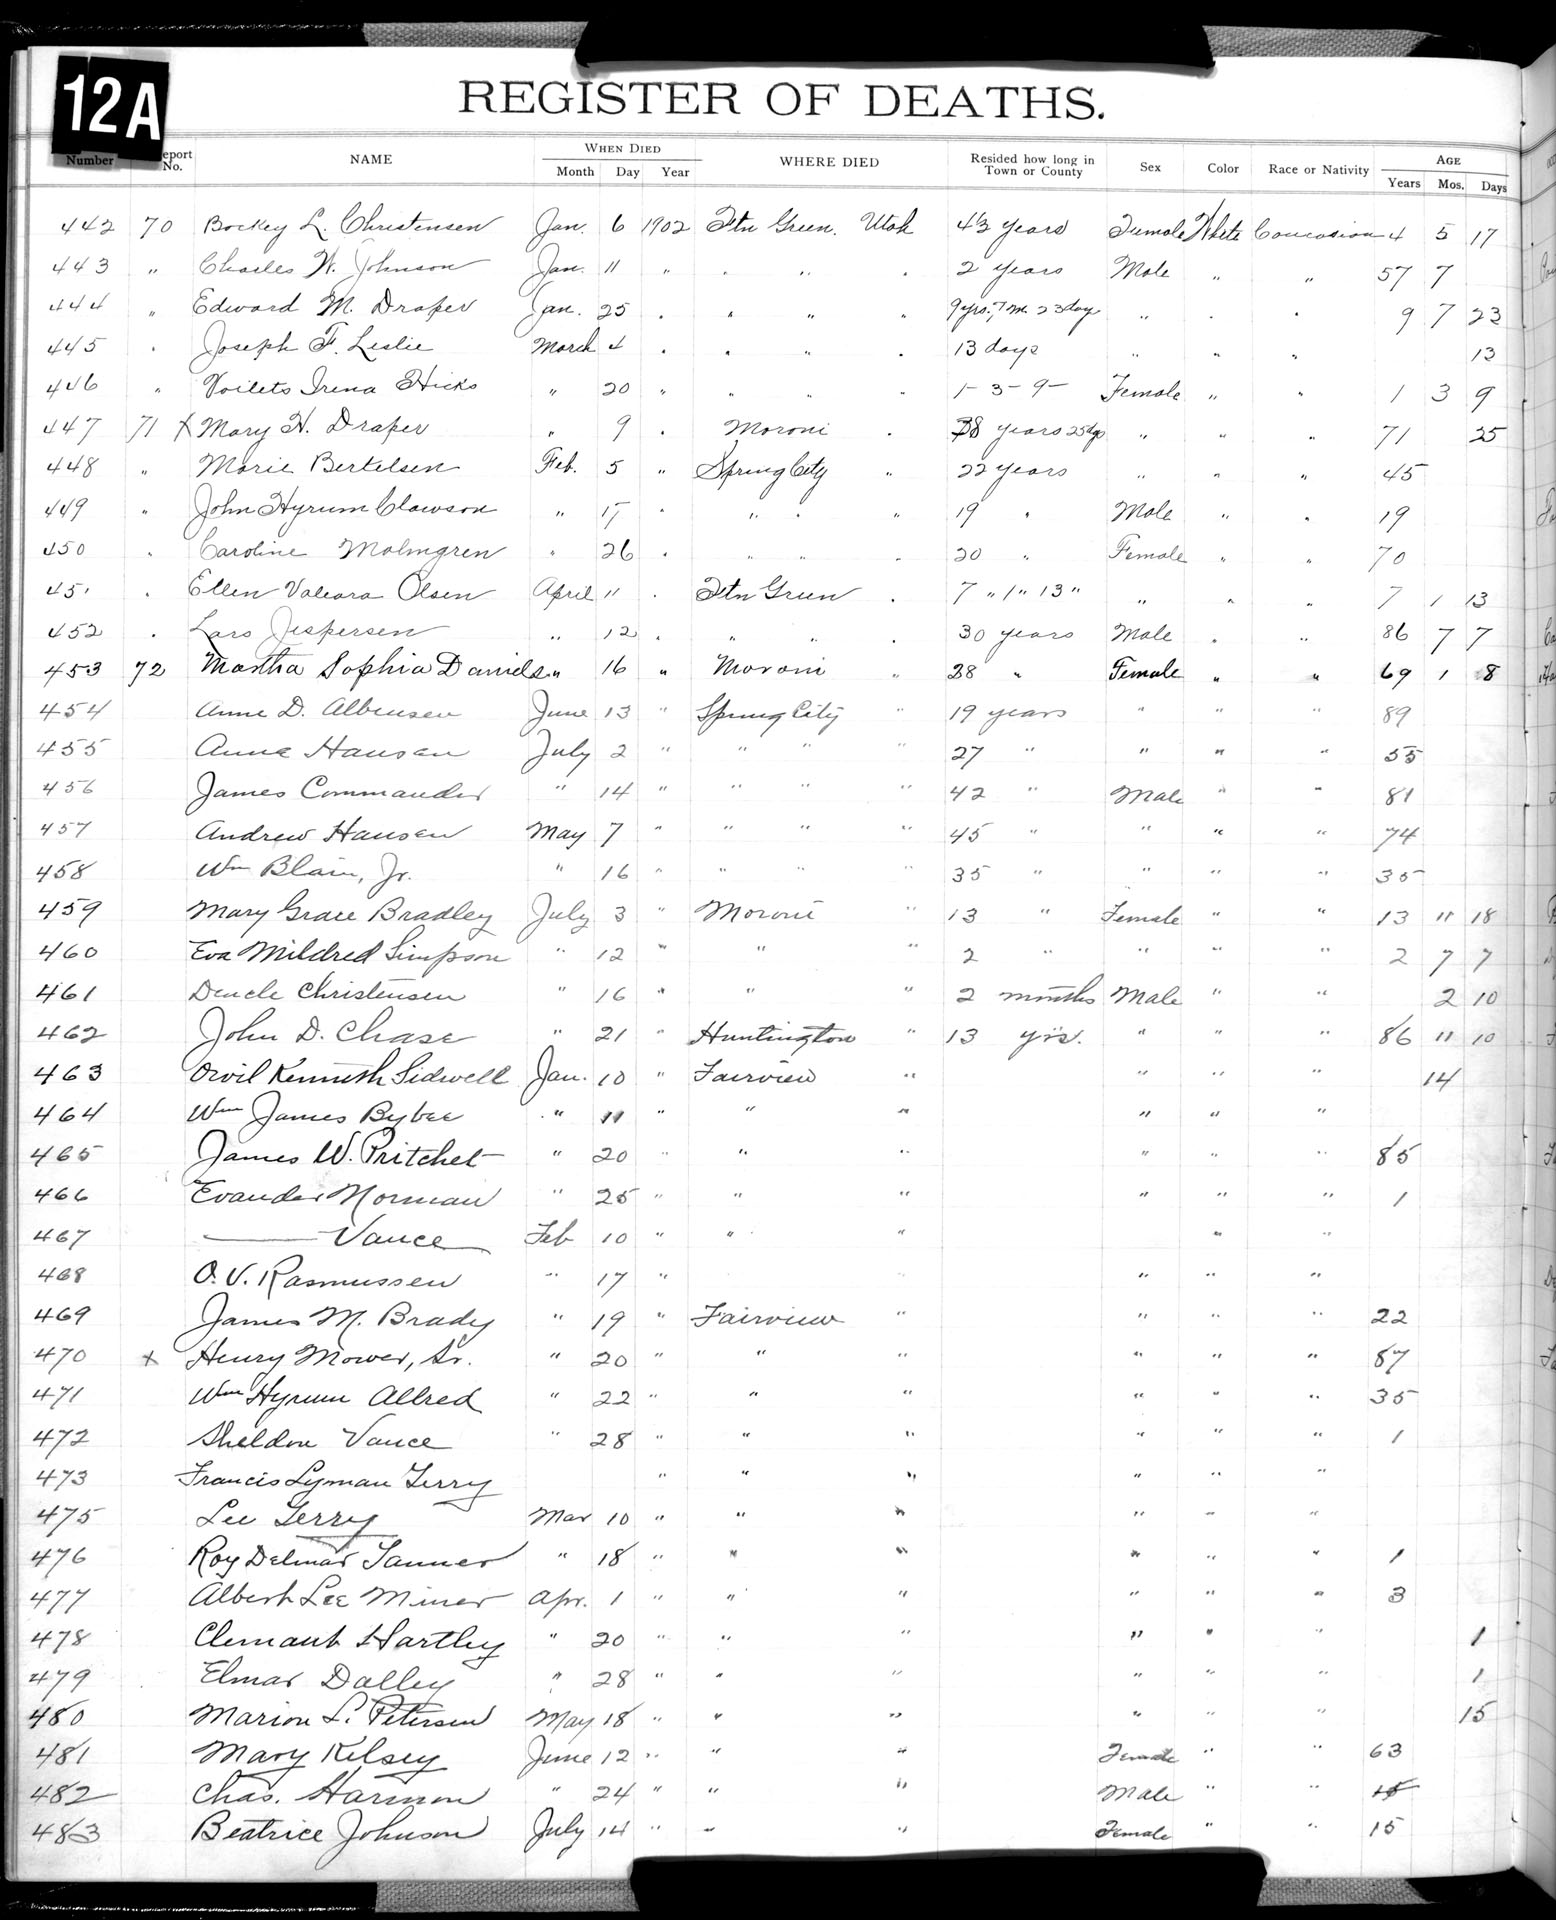 12A
REGISTER OF DEATHS.
Number Report No. NAME WHEN DIED Month Day Year WHERE DIED Resided how long in Town or County Sex Color Race or Nativity AGE Years Mos. Days
442 70 Bockey L. Christensen Jan. 6 1902 Ftn Green. Utah 4½ years Female White Caucasian 4 5 17
443 " Charles W. Johnson Jan. 11 " " " " 2 years Male " " 57 7
444 " Edward M. Draper Jan. 25 " " " " 9 yrs. 7 m. 23 days " " " 9 7 23
445 " Joseph F. Leslie March 4 " " " " 13 days " " " 13
446 " Voilets Irena Hicks " 20 " " " " 1-3-9- Female " " 1 3 9
447 71 X Mary H. Draper " 9 " Moroni " 38 years 25 dys " " " 71 25
448 " Marie Bertelsen Feb. 5 " Spring City " 22 years " " " 45
449 " John Hyrum Clawson " 17 " " " " 19 " Male " " 19
450 " Caroline Malmgren " 26 " " " " 20 " Female " " 70
451 " Ellen Valeara Olsen April 11 " Ftn Green " 7 " 1 " 13 " " " " 7 1 13
452 " Lars Jespersen " 12 " " " " 30 years Male " " 86 7 7
453 72 Martha Sophia Daniels " 16 " Moroni " 28 " Female " " 69 1 8
454 Anne D. Albensen June 13 " Spring City " 19 years " " " 89
455 Anna Hansen July 2 " " " " 27 " " " " 55
456 James Commander " 14 " " " " 42 " Male " " 81
457 Andrew Hansen May 7 " " " " 45 " " " " 74
458 Wm Blain, Jr. " 16 " " " " 35 " " " " 35
459 Mary Grace Bradley July 3 " Moroni " 13 " Female " " 13 11 18
460 Eva Mildred Simpson " 12 " " " 2 " " " " 2 7 7
461 Christensen " 16 " " " 2 months Male " " 2 10
462 John D. Chase " 21 " Huntington " 13 yrs. " " " 86 11 10
463 Orvil Kenneth Sidwell Jan. 10 " Fairview " " " " 14
464 Wm James Bybee " 11 " " " " " "
465 James W. Pritchet " 20 " " " " " " 85
466 Evander Norman " 25 " " " " " " 1
467 —— Vance Feb 10 " " " " "
468 O. V. Rasmussen " 17 " " " " "
469 James M. Brady " 19 " Fairview " " " " 22
470 x Henry Mower, Sr. " 20 " " " " " " 87
471 Wm Hyrum Allred " 22 " " " " " " 35
472 Sheldon Vance " 28 " " " " " " 1
473 Francis Lyman Terry " " " " " "
475 Lee Terry Mar 10 " " " " " "
476 Roy Delmar Tanner " 18 " " " " " " 1
477 Albert Lee Miner Apr. 1 " " " " " " 3
478 Clemant Hartley " 20 " " " " " " 1
479 Elmar Dalley " 28 " " " " " " 1
480 Marion L. Petersen May 18 " " " " " " 15
481 Mary Kelsey June 12 " " " Female " " 63
482 Chas. Harmon " 24 " " " Male " " 15
483 Beatrice Johnson July 14 " " " Female " " 15